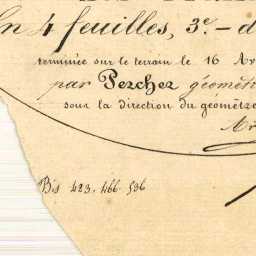 En 4 feuilles, 3e. - d
terminée sur le terrain le 16 Av
par Percher géomét
sous la direction du géomètre
Ar
Bis 423. 466. 536